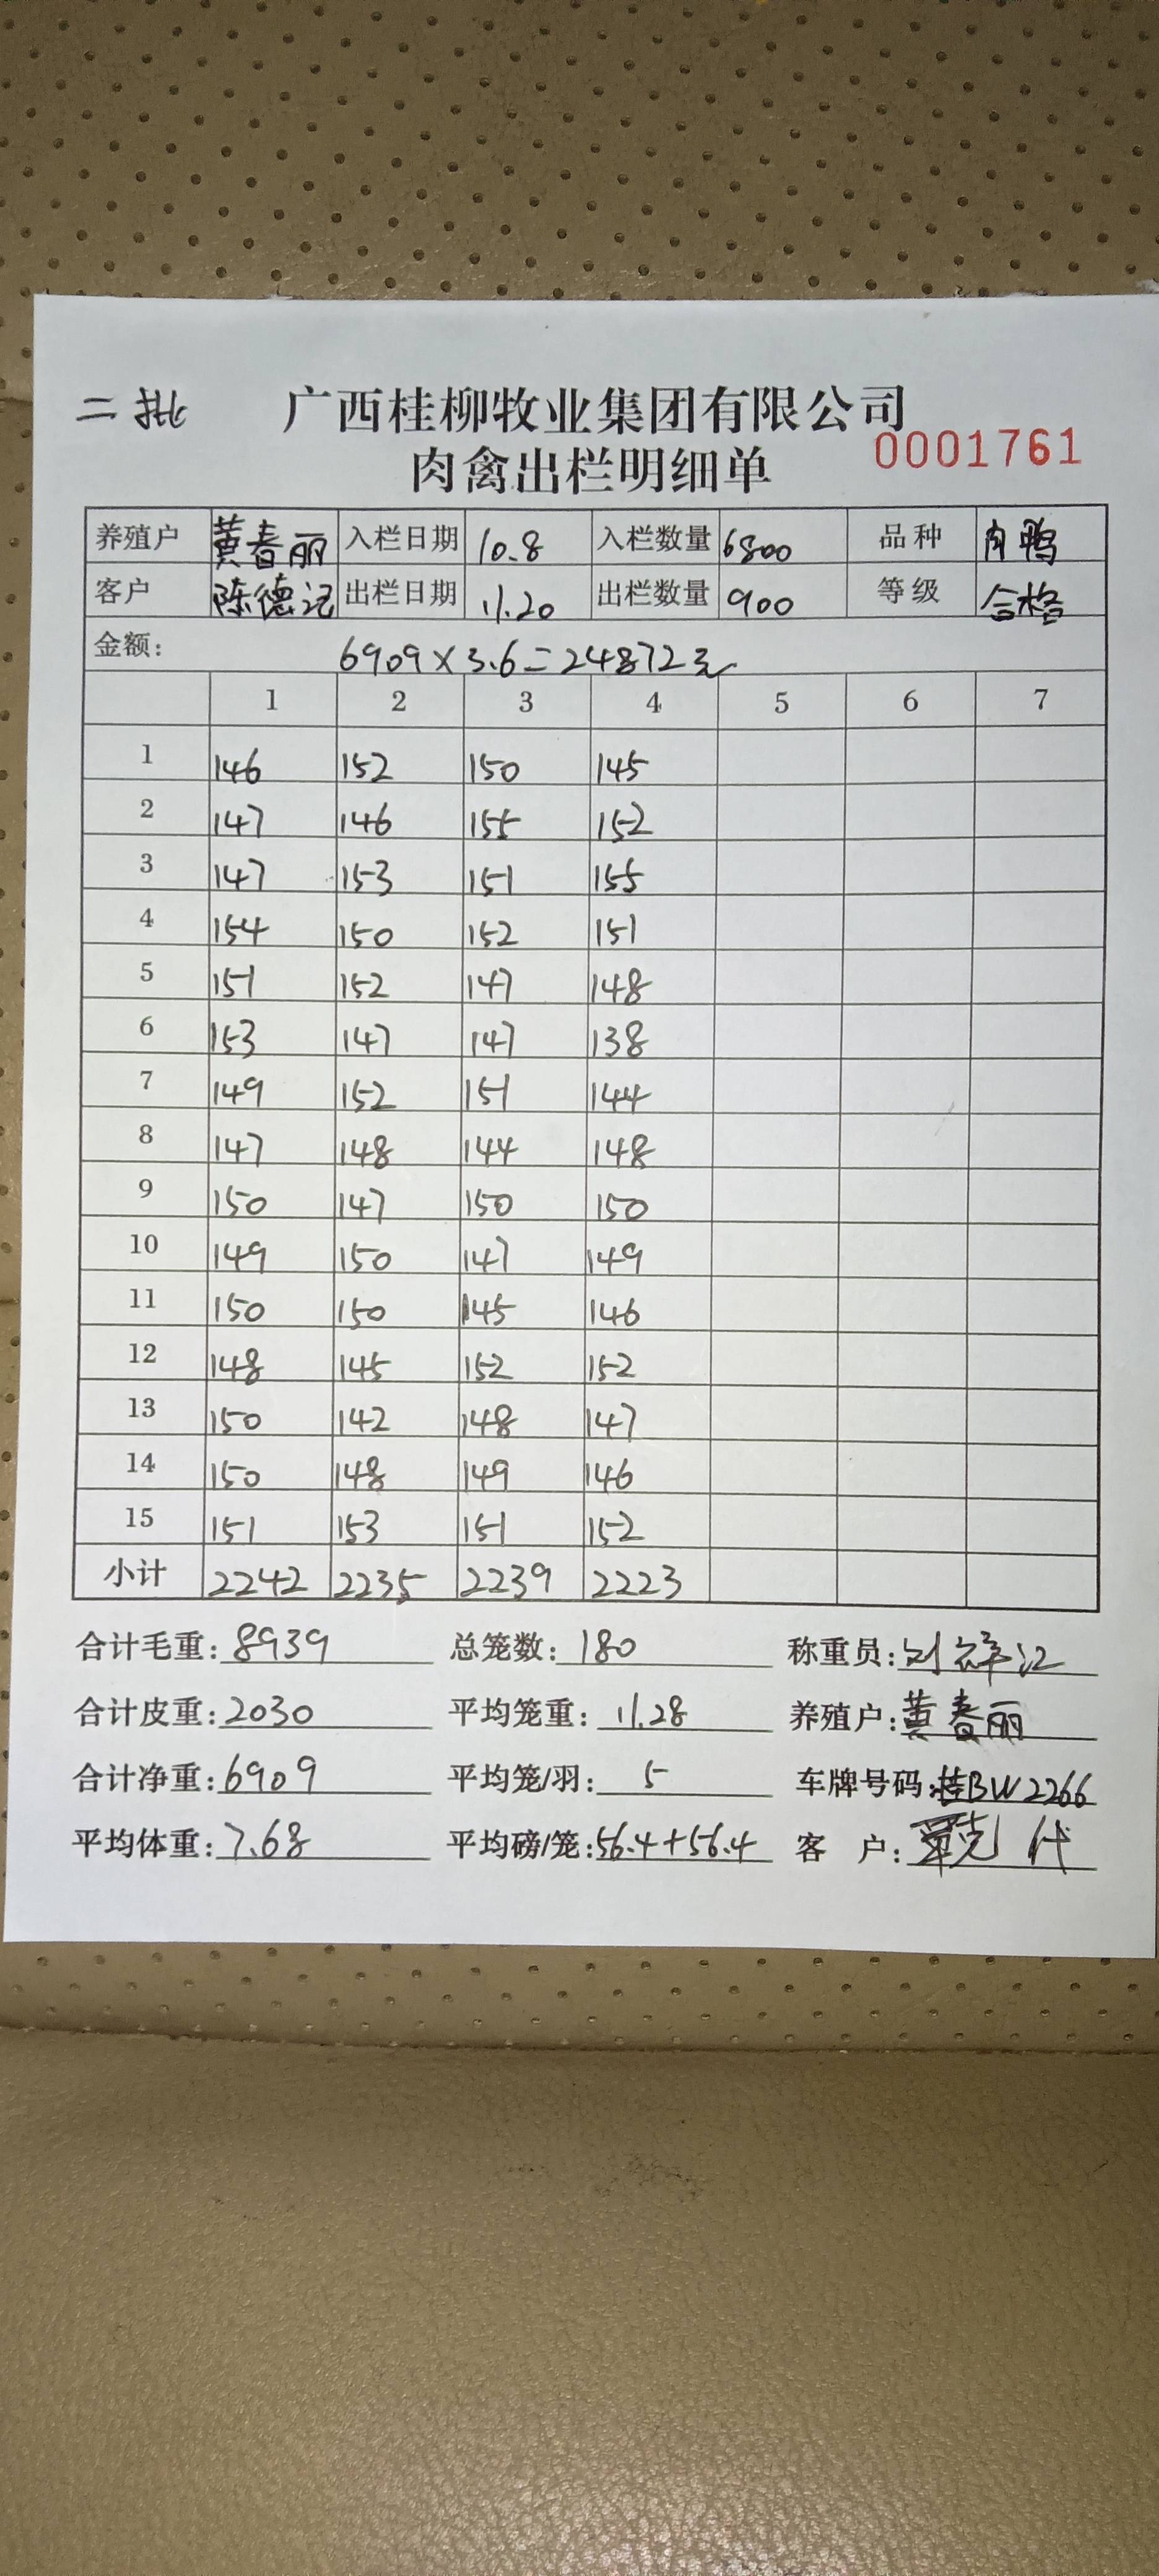 二批 广西桂柳牧业集团有限公司
0001761
肉禽出栏明细单
养殖户 黄春丽 入栏日期 10.8 入栏数量 6800 品种 肉鸭
客户 陈德记 出栏日期 11.20 出栏数量 900 等级 合格
金额: 6909×3.6=24872元
1 2 3 4 5 6 7
1 146 152 150 145
2 147 146 155 152
3 147 153 151 155
4 154 150 152 151
5 151 152 147 148
6 153 147 147 138
7 149 152 151 144
8 147 148 144 148
9 150 147 150 150
10 149 150 147 149
11 150 150 145 146
12 148 145 152 152
13 150 142 148 147
14 150 148 149 146
15 151 153 151 152
小计 2242 2235 2239 2223
合计毛重: 8939 总笼数: 180 称重员: 刘
合计皮重: 2030 平均笼重: 11.28 养殖户: 黄春丽
合计净重: 6909 平均笼/羽: 5 车牌号码: 桂BW2266
平均体重: 7.68 平均磅/笼: 56.4+56.4 客 户: 代